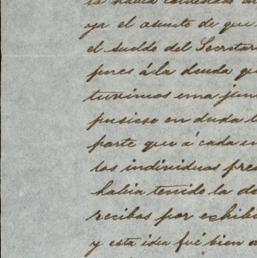 la había
ya el asunto de que
el sueldo del Secretar
pues á la deuda qu
tuvimos una jun
pusiese en duda l
parte que á cada un
los individuos pres
había tenido la de
recibos por exhibi
y esta idea fué bien a